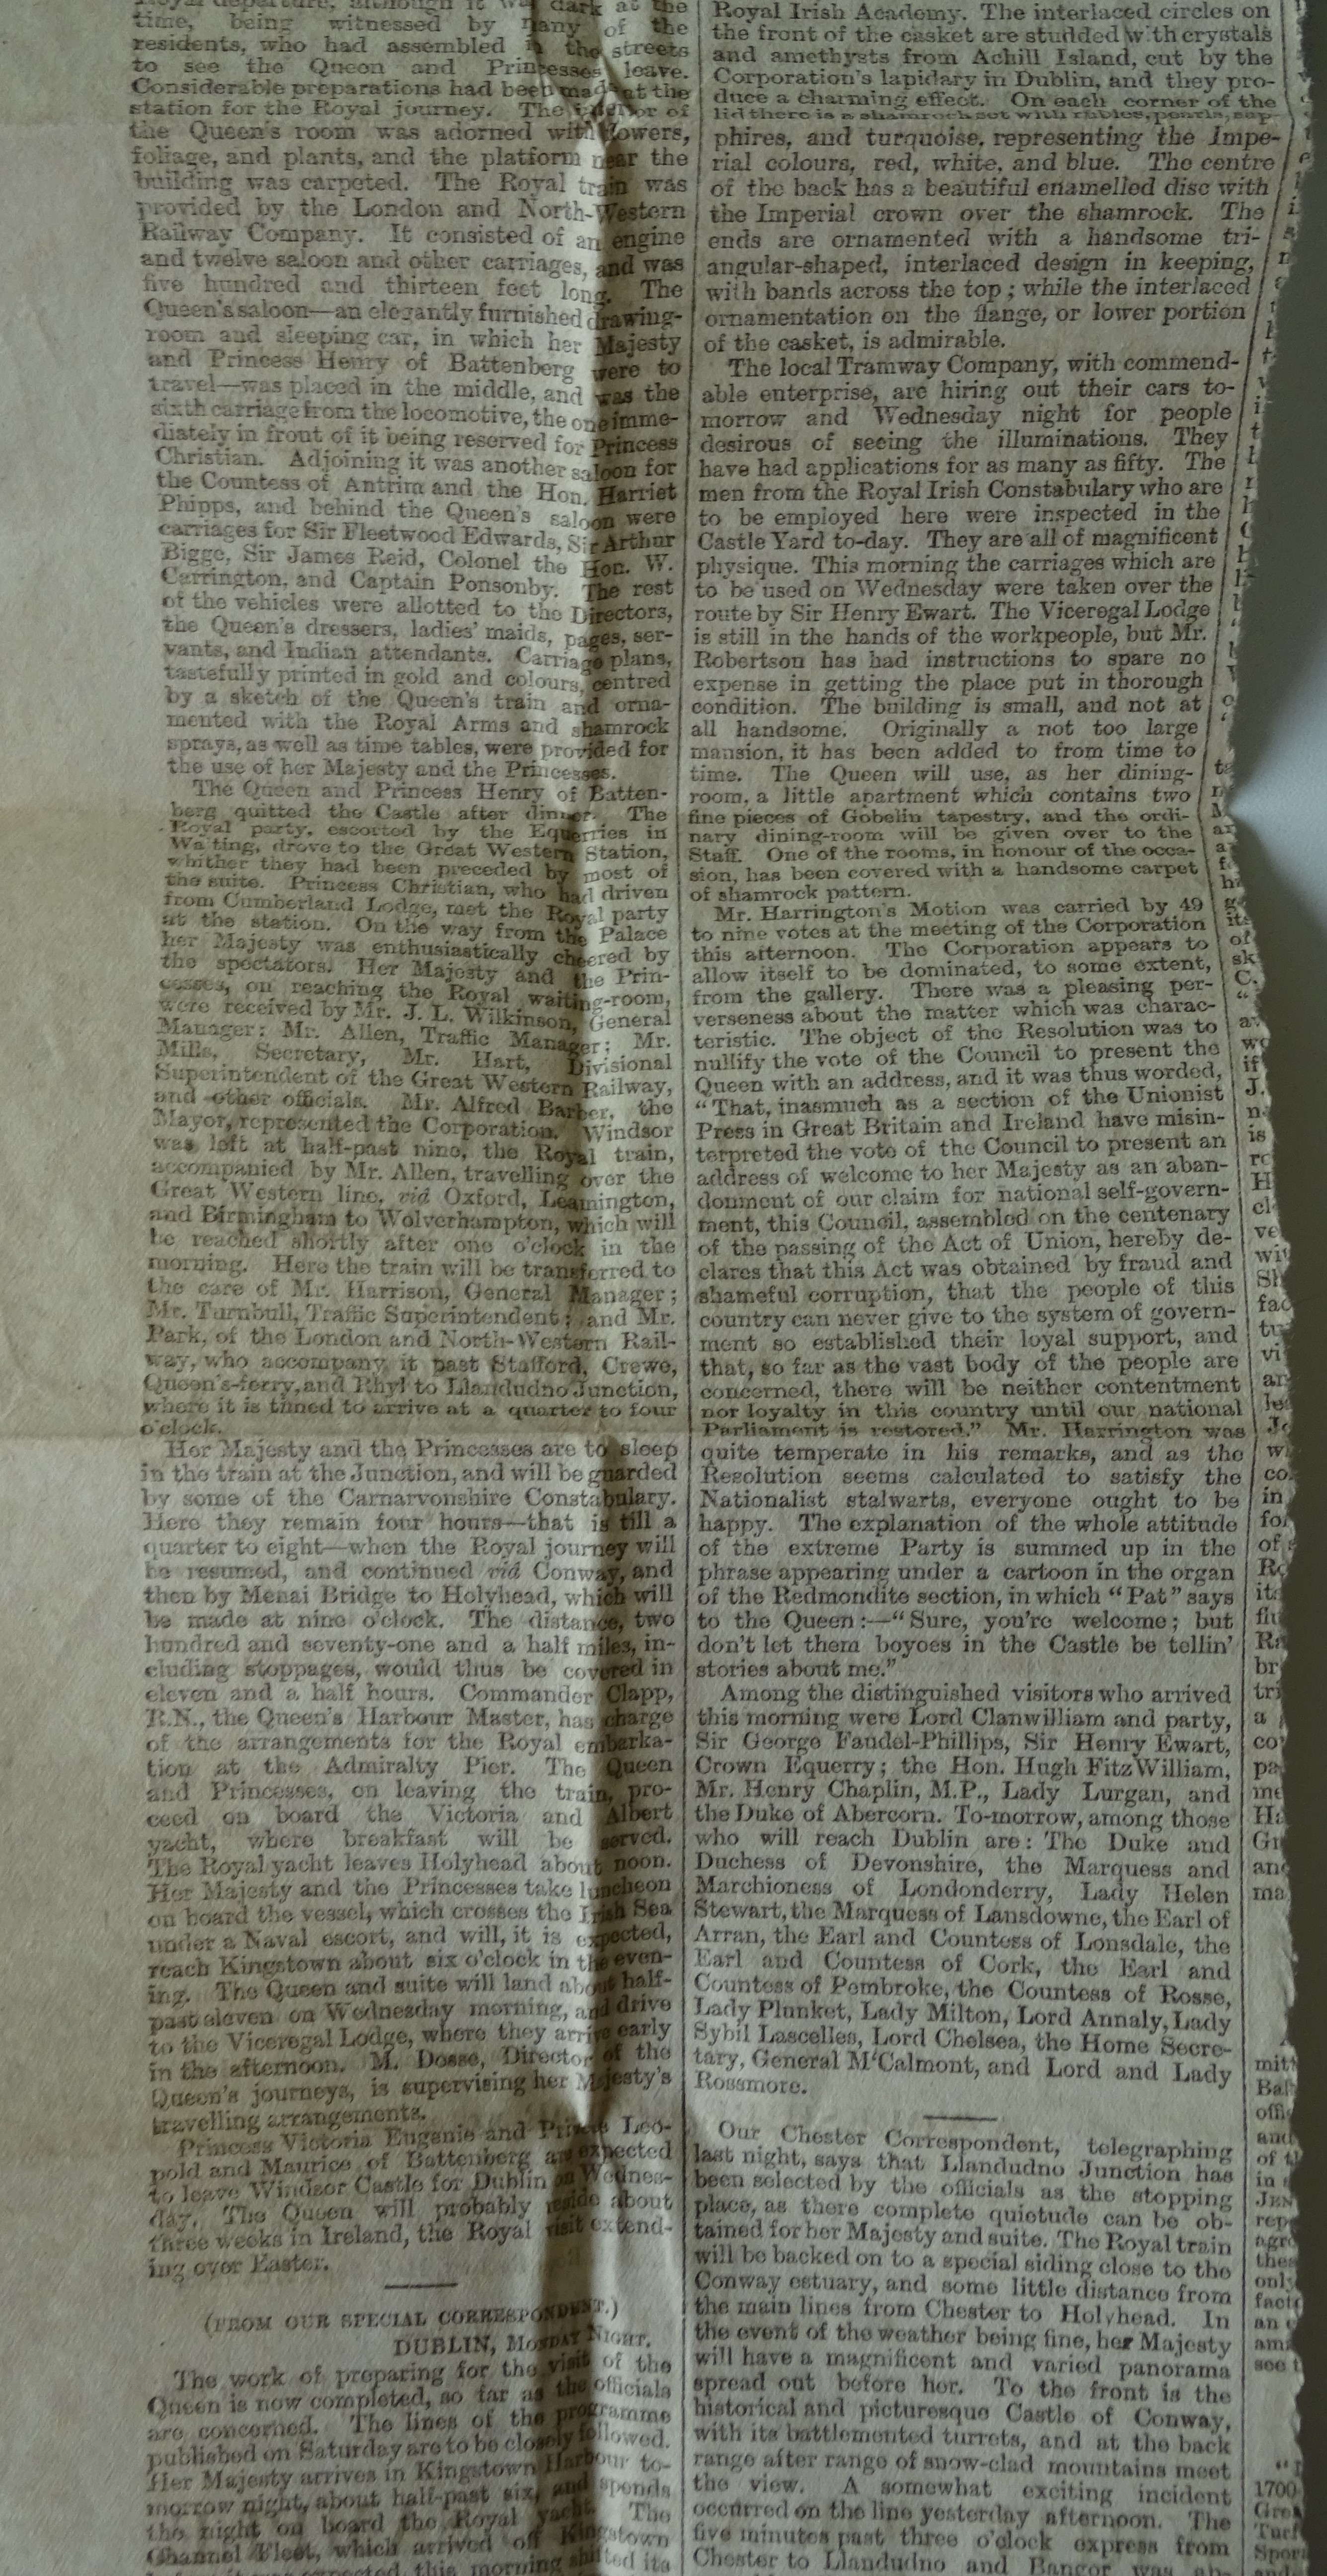 Royal departure, although it was dark at the
time, being witnessed by many of the
residents, who had assembled in the streets
to see the Queen and Princesses leave.
Considerable preparations had been made at the
station for the Royal journey. The interior of
the Queen's room was adorned with flowers,
foliage, and plants, and the platform near the
building was carpeted. The Royal train was
provided by the London and North-Western
Railway Company. It consisted of an engine
and twelve saloon and other carriages, and was
five hundred and thirteen feet long. The
Queen's saloon—an elegantly furnished drawing-
room and sleeping car, in which her Majesty
and Princess Henry of Battenberg were to
travel—was placed in the middle, and was the
sixth carriage from the locomotive, the one imme-
diately in front of it being reserved for Princess
Christian. Adjoining it was another saloon for
the Countess of Antrim and the Hon. Harriet
Phipps, and behind the Queen's saloon were
carriages for Sir Fleetwood Edwards, Sir Arthur
Bigge, Sir James Reid, Colonel the Hon. W.
Carrington, and Captain Ponsonby. The rest
of the vehicles were allotted to the Directors,
the Queen's dressers, ladies' maids, pages, ser-
vants, and Indian attendants. Carriage plans,
tastefully printed in gold and colours, centred
by a sketch of the Queen's train and orna-
mented with the Royal Arms and shamrock
sprays, as well as time tables, were provided for
the use of her Majesty and the Princesses.
The Queen and Princess Henry of Batten-
berg quitted the Castle after dinner. The
Royal party, escorted by the Equerries in
Waiting, drove to the Great Western Station,
whither they had been preceded by most of
the suite. Princess Christian, who had driven
from Cumberland Lodge, met the Royal party
at the station. On the way from the Palace
her Majesty was enthusiastically cheered by
the spectators. Her Majesty and the Prin-
cesses, on reaching the Royal waiting-room,
were received by Mr. J. L. Wilkinson, General
Manager; Mr. Allen, Traffic Manager; Mr.
Mills, Secretary, Mr. Hart, Divisional
Superintendent of the Great Western Railway,
and other officials. Mr. Alfred Barber, the
Mayor, represented the Corporation. Windsor
was left at half-past nine, the Royal train,
accompanied by Mr. Allen, travelling over the
Great Western line, viâ Oxford, Leamington,
and Birmingham to Wolverhampton, which will
be reached shortly after one o'clock in the
morning. Here the train will be transferred to
the care of Mr. Harrison, General Manager;
Mr. Turnbull, Traffic Superintendent; and Mr.
Park, of the London and North-Western Rail-
way, who accompany it past Stafford, Crewe,
Queen's-ferry, and Rhyl to Llandudno Junction,
where it is timed to arrive at a quarter to four
o'clock.
Her Majesty and the Princesses are to sleep
in the train at the Junction, and will be guarded
by some of the Carnarvonshire Constabulary.
Here they remain four hours—that is till a
quarter to eight—when the Royal journey will
be resumed, and continued viâ Conway, and
then by Menai Bridge to Holyhead, which will
be made at nine o'clock. The distance, two
hundred and seventy-one and a half miles, in-
cluding stoppages, would thus be covered in
eleven and a half hours. Commander Clapp,
R.N., the Queen's Harbour Master, has charge
of the arrangements for the Royal embarka-
tion at the Admiralty Pier. The Queen
and Princesses, on leaving the train, pro-
ceed on board the Victoria and Albert
yacht, where breakfast will be served.
The Royal yacht leaves Holyhead about noon.
Her Majesty and the Princesses take luncheon
on board the vessel, which crosses the Irish Sea
under a Naval escort, and will, it is expected,
reach Kingstown about six o'clock in the even-
ing. The Queen and suite will land about half-
past eleven on Wednesday morning, and drive
to the Viceregal Lodge, where they arrive early
in the afternoon. M. Dosse, Director of the
Queen's journeys, is supervising her Majesty's
travelling arrangements.
Princess Victoria Eugenie and Princes Leo-
pold and Maurice of Battenberg are expected
to leave Windsor Castle for Dublin on Wednes-
day. The Queen will probably reside about
three weeks in Ireland, the Royal visit extend-
ing over Easter.
(FROM OUR SPECIAL CORRESPONDENT.)
DUBLIN, MONDAY NIGHT.
The work of preparing for the visit of the
Queen is now completed, so far as the officials
are concerned. The lines of the programme
published on Saturday are to be closely followed.
Her Majesty arrives in Kingstown Harbour to-
morrow night, about half-past six, and spends
the night on board the Royal yacht. The
Channel Fleet, which arrived off Kingstown
expected, this morning shifted its
Royal Irish Academy. The interlaced circles on
the front of the casket are studded with crystals
and amethysts from Achill Island, cut by the
Corporation's lapidary in Dublin, and they pro-
duce a charming effect. On each corner of the
lid there is a shamrock set with rubies, pearls, sap-
phires, and turquoise, representing the Impe-
rial colours, red, white, and blue. The centre
of the back has a beautiful enamelled disc with
the Imperial crown over the shamrock. The
ends are ornamented with a handsome tri-
angular-shaped, interlaced design in keeping,
with bands across the top; while the interlaced
ornamentation on the flange, or lower portion
of the casket, is admirable.
The local Tramway Company, with commend-
able enterprise, are hiring out their cars to-
morrow and Wednesday night for people
desirous of seeing the illuminations. They
have had applications for as many as fifty. The
men from the Royal Irish Constabulary who are
to be employed here were inspected in the
Castle Yard to-day. They are all of magnificent
physique. This morning the carriages which are
to be used on Wednesday were taken over the
route by Sir Henry Ewart. The Viceregal Lodge
is still in the hands of the workpeople, but Mr.
Robertson has had instructions to spare no
expense in getting the place put in thorough
condition. The building is small, and not at
all handsome. Originally a not too large
mansion, it has been added to from time to
time. The Queen will use, as her dining-
room, a little apartment which contains two
fine pieces of Gobelin tapestry, and the ordi-
nary dining-room will be given over to the
Staff. One of the rooms, in honour of the occa-
sion, has been covered with a handsome carpet
of shamrock pattern.
Mr. Harrington's Motion was carried by 49
to nine votes at the meeting of the Corporation
this afternoon. The Corporation appears to
allow itself to be dominated, to some extent,
from the gallery. There was a pleasing per-
verseness about the matter which was charac-
teristic. The object of the Resolution was to
nullify the vote of the Council to present the
Queen with an address, and it was thus worded,
"That, inasmuch as a section of the Unionist
Press in Great Britain and Ireland have misin-
terpreted the vote of the Council to present an
address of welcome to her Majesty as an aban-
donment of our claim for national self-govern-
ment, this Council, assembled on the centenary
of the passing of the Act of Union, hereby de-
clares that this Act was obtained by fraud and
shameful corruption, that the people of this
country can never give to the system of govern-
ment so established their loyal support, and
that, so far as the vast body of the people are
concerned, there will be neither contentment
nor loyalty in this country until our national
Parliament is restored." Mr. Harrington was
quite temperate in his remarks, and as the
Resolution seems calculated to satisfy the
Nationalist stalwarts, everyone ought to be
happy. The explanation of the whole attitude
of the extreme Party is summed up in the
phrase appearing under a cartoon in the organ
of the Redmondite section, in which "Pat" says
to the Queen:—"Sure, you're welcome; but
don't let them boyoes in the Castle be tellin'
stories about me."
Among the distinguished visitors who arrived
this morning were Lord Clanwilliam and party,
Sir George Faudel-Phillips, Sir Henry Ewart,
Crown Equerry; the Hon. Hugh FitzWilliam,
Mr. Henry Chaplin, M.P., Lady Lurgan, and
the Duke of Abercorn. To-morrow, among those
who will reach Dublin are: The Duke and
Duchess of Devonshire, the Marquess and
Marchioness of Londonderry, Lady Helen
Stewart, the Marquess of Lansdowne, the Earl of
Arran, the Earl and Countess of Lonsdale, the
Earl and Countess of Cork, the Earl and
Countess of Pembroke, the Countess of Rosse,
Lady Plunket, Lady Milton, Lord Annaly, Lady
Sybil Lascelles, Lord Chelsea, the Home Secre-
tary, General M'Calmont, and Lord and Lady
Rossmore.
Our Chester Correspondent, telegraphing
last night, says that Llandudno Junction has
been selected by the officials as the stopping
place, as there complete quietude can be ob-
tained for her Majesty and suite. The Royal train
will be backed on to a special siding close to the
Conway estuary, and some little distance from
the main lines from Chester to Holyhead. In
the event of the weather being fine, her Majesty
will have a magnificent and varied panorama
spread out before her. To the front is the
historical and picturesque Castle of Conway,
with its battlemented turrets, and at the back
range after range of snow-clad mountains meet
the view. A somewhat exciting incident
occurred on the line yesterday afternoon. The
five minutes past three o'clock express from
Chester to Llandudno and Bangor was